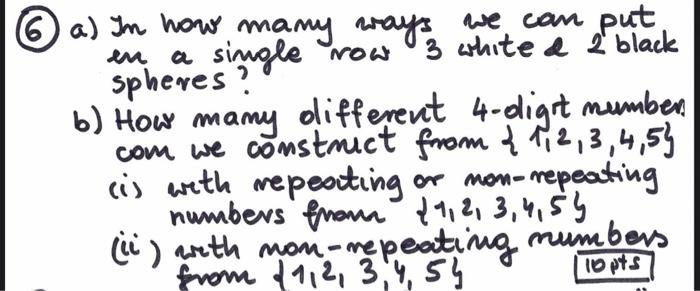 6 a) In how many ways we can put
in a single row 3 white & 2 black
spheres?
b) How many different 4-digit numbers
can we construct from {1,2,3,4,5}
(i) with repeating or non-repeating
numbers from {1,2,3,4,5}
(ii) with non-repeating numbers
from {1,2,3,4,5}
10 pts